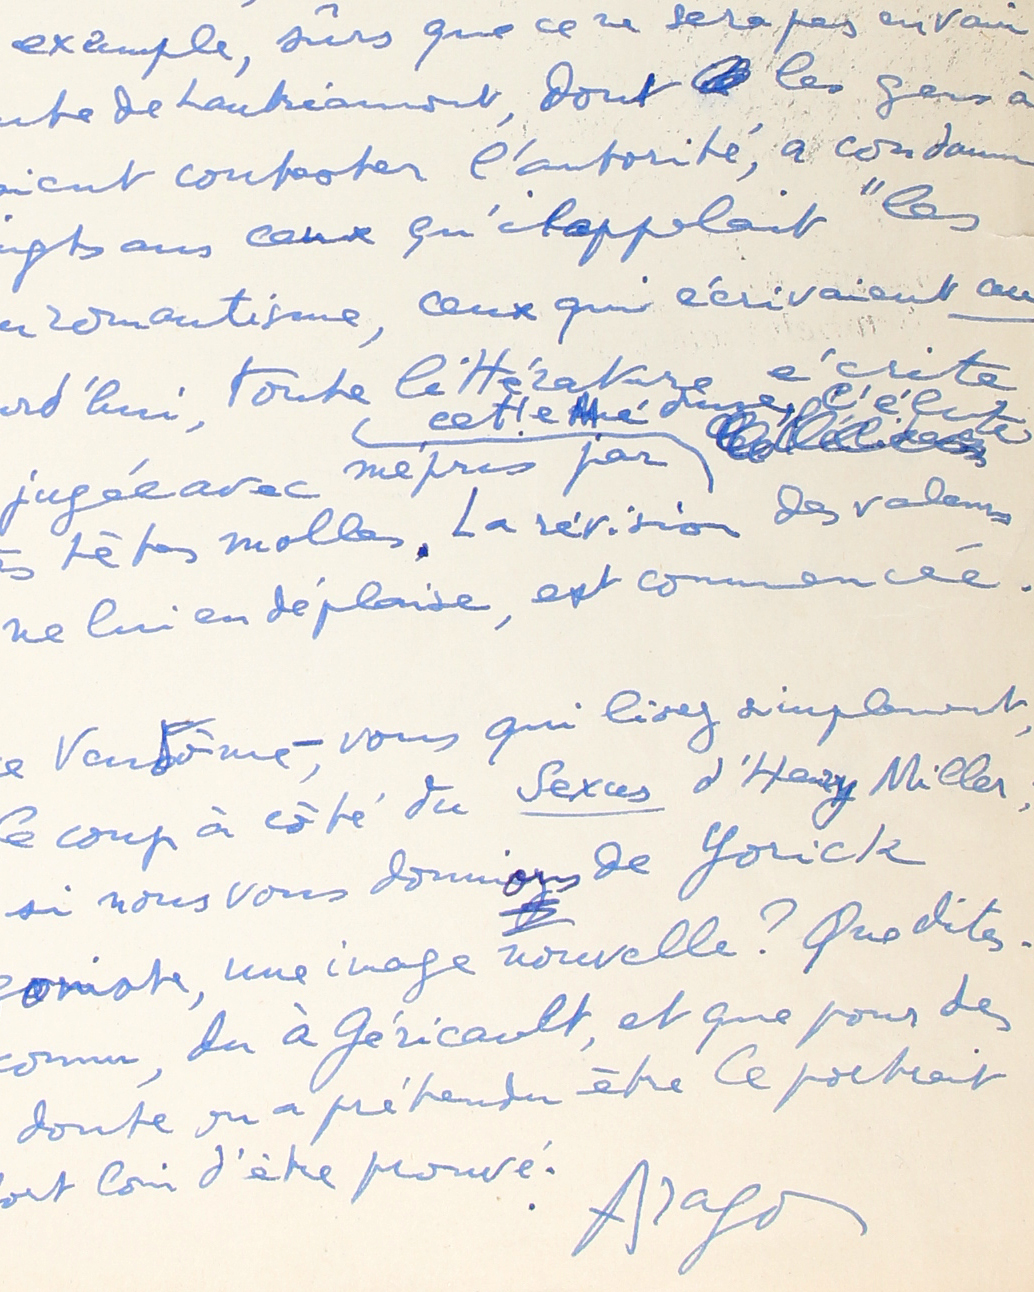 exemple, sûrs que ce ne sera pas en vain
de Lautréamont, dont les gens à
contester l'autorité, a condamn
ingts ans ceux qu'il appelait "les
romantisme, ceux qui écrivaient au
urd'hui, toute littérature écrite
cette l'élite
jugée avec mépris par
têtes molles. La révision des valeurs
ne lui en déplaise, est commencée.
Vendôme, vous qui lisez simplement,
ce coup à côté du Sexus d'Henry Miller,
si nous vous donnions de Yorick
une image nouvelle? Que dites-
connu, du à Géricault, et que pour des
doute on a prétendu être le portrait
fort loin d'être prouvé.
Aragon